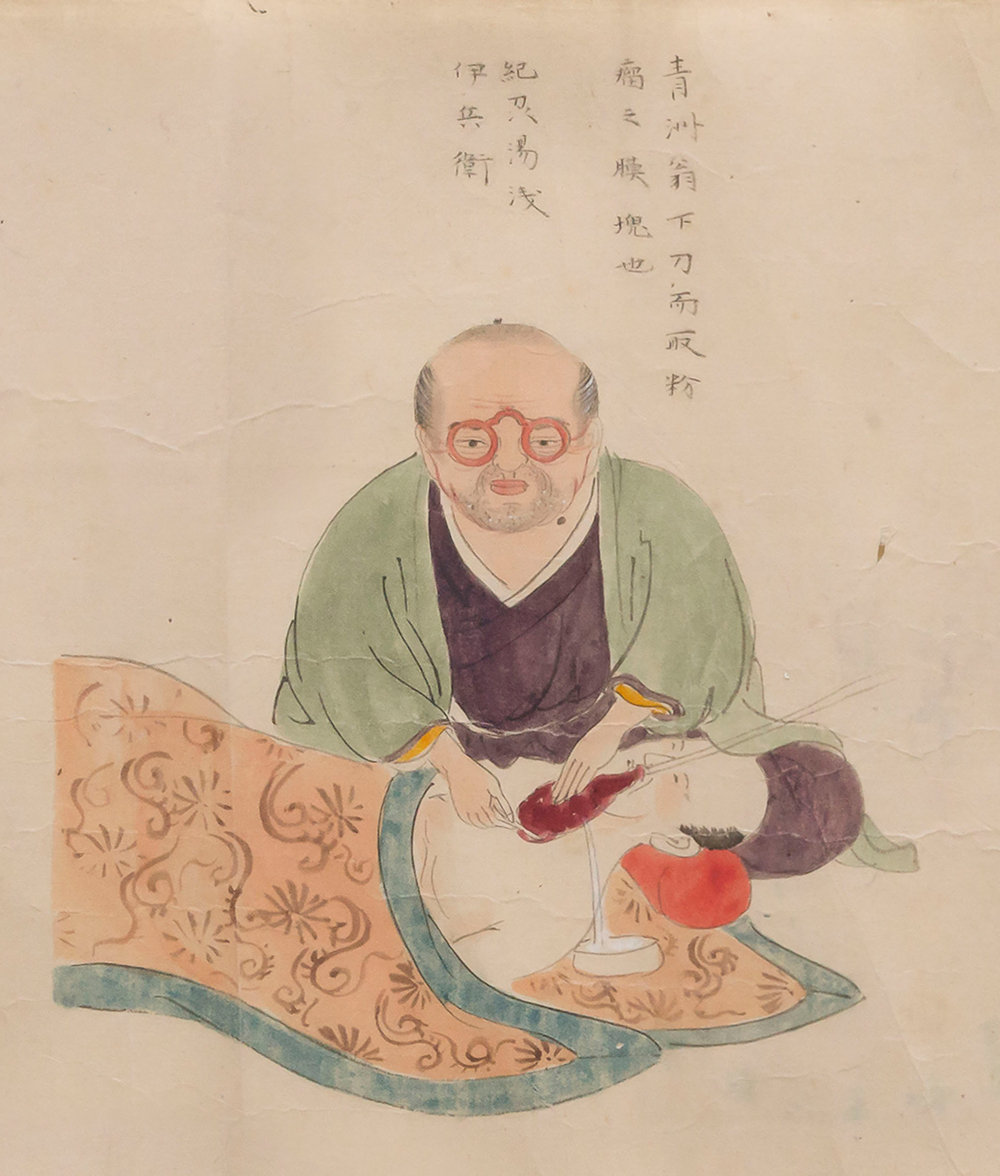 青洲翁下刀而取粉
瘤之膜塊也
紀刕湯浅
伊兵衛